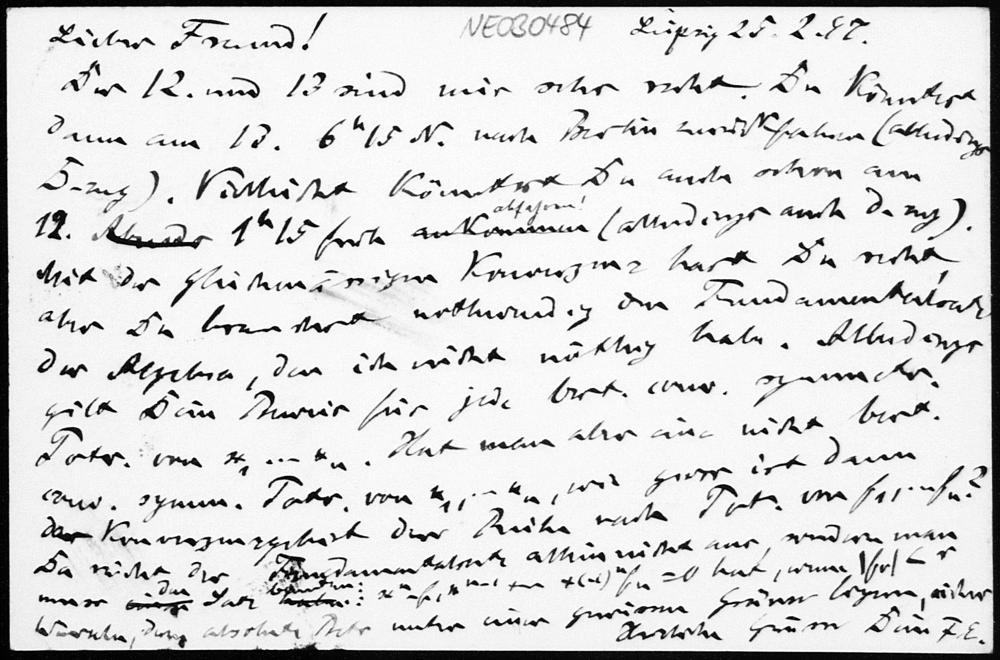 Lieber Freund! NE030484 Leipzig 25. 2. 47.
Der 12. und 13 sind mir sehr recht. Du könntest
dann am 13. 6h15 N. nach Berlin zurückfahren (allerdings
D-zug). Vielleicht könntest Du auch schon am
12. Abends 1h15 früh ankommen abfahren! (allerdings auch D-zug).
Mit der gleichmässigen Konvergenz hast Du recht,
aber Du brauchst nothwendig den Fundamentalsatz
der Algebra, den ich nicht nöthig habe. Allerdings
gilt Dein Beweis für jede best. conv. symmetr.
Potr. von x1, ... xn. Hat man aber eine nicht best.
conv. symm. Potr. von x1, ... xn, wie gross ist dann
das Konvergenzgebiet der Reihe nach Pot. von f1, ... fn?
Da reicht der Fundamentalsatz allein nicht aus, sondern man
muss den Satz : x^n - f1 x^n-1 + ... +(-1)^n fn = 0 hat, wenn |fν| < ε
Wurzeln, deren absolute unter einer gewissen Grenze liegen,
Herzliche Grüsse Dein F.E.